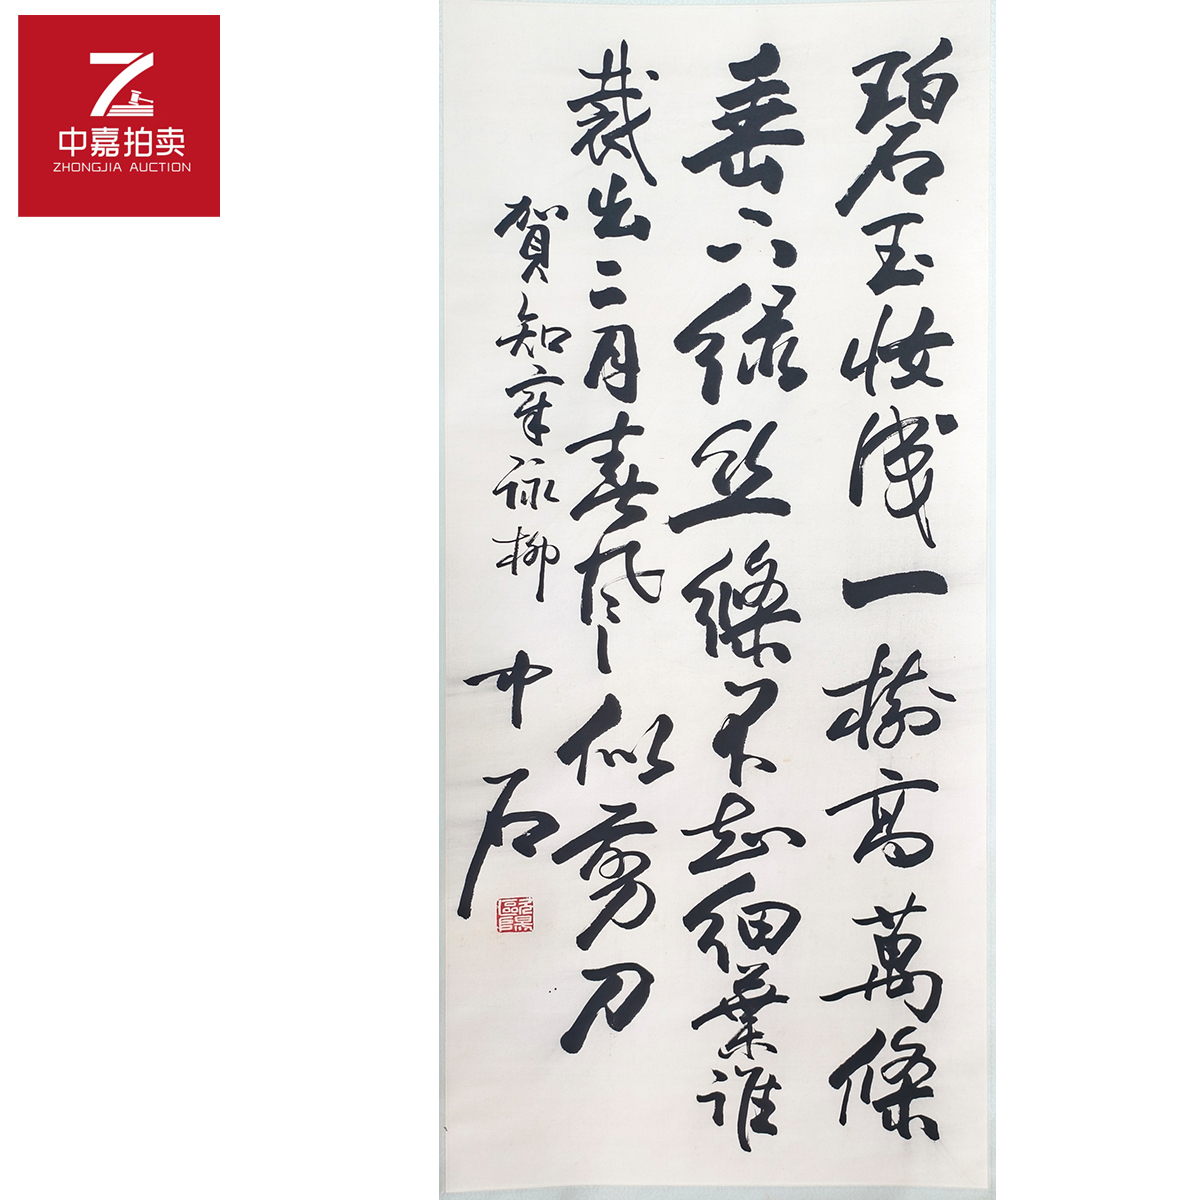 中嘉拍卖
ZHONGJIA AUCTION
碧玉妆成一樹高萬條
垂下绿丝絛不知細葉谁
裁出二月春風似剪刀
賀知章詠柳
中石